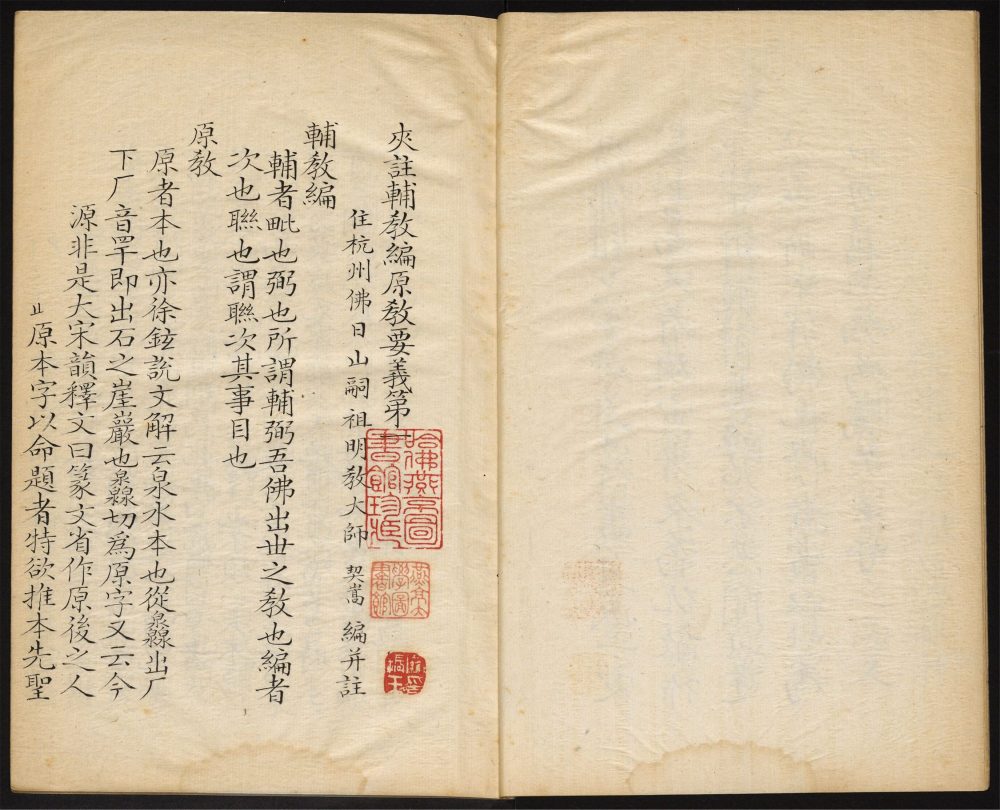 夾註輔教編原教要義第
住杭州佛日山嗣祖明教大師 契嵩 編并註
輔教編
輔者毗也弼也所謂輔弼吾佛出世之教也編者
次也聯也謂聯次其事目也
原教
原者本也亦徐鉉說文解云泉水本也從灥出厂
下厂音罕即出石之崖巖也灥切爲原字又云今
源非是大宋韻釋文曰篆文省作原後之人
原本字以命題者特欲推本先聖
哈佛燕京圖書館珍藏
燕京大學圖書館